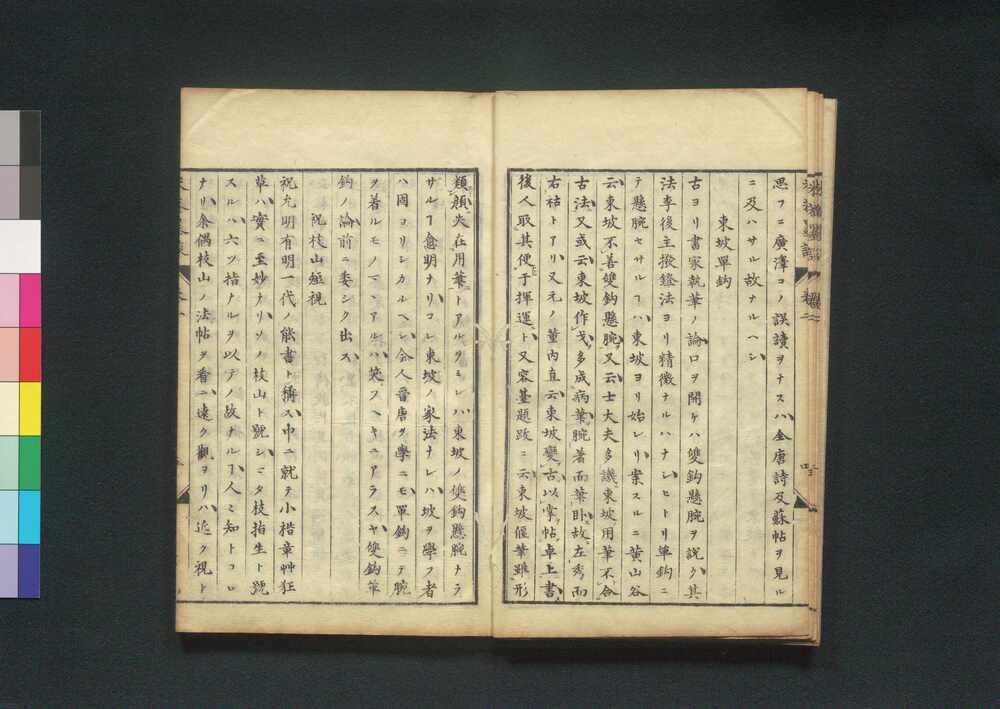 思フニ廣澤コノ誤讀ヲナスハ全唐詩及蘇帖ヲ見ル
ニ及ハサル故ナルヘシ
東坡單鈎
古ヨリ書家執筆ノ論口ヲ開ケハ雙鈎懸腕ヲ說ク其
法李後主撥鐙法ヨリ精徴ナルハナシヒトリ單鈎ニ
テ懸腕セサルヿハ東坡ヨリ始レリ案スルニ黄山谷
云東坡不善雙鈎懸腕又云士大夫多譏東坡用筆不合
古法又或云東坡作戈多成病筆腕著而筆卧故左秀而
右祜トアリ又元ノ董内直云東坡變古以掌帖卓上書
後人取其便于揮運ト又容臺題跋ニ云東坡偃筆雖形
類顔失在用筆トアルヲミレハ東坡ノ雙鈎懸腕ナラ
サルヿ愈明ナリコレ東坡ノ家法ナレハ坡ヲ學フ者
ハ固ヨリシカルヘシ今人晋唐ヲ學ニモ單鈎ニテ腕
ヲ着ルモノマヽアルハ笑フヘキニアラスヤ雙鈎單
鈎ノ論前ニ委シク出ス
祝枝山短視
祝允明有明一代ノ能書ト稱ス中ニ就テ小楷章艸狂
草ハ實ニ至妙ナリソノ枝山ト號シマタ枝指生ト號
スルハ六ツ指ナルヲ以テノ故ナルヿ人ミ知トコロ
ナリ余偶枝山ノ法帖ヲ看ニ遠ク觀ヲリハ近ク視ト